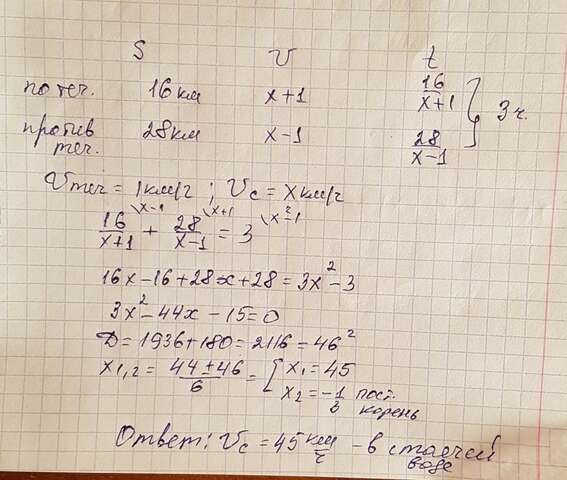 S V t
по теч. 16 км x+1 16/x+1
3 ч.
против теч. 28 км x-1 28/x-1
Vтеч = 1 км/г ; Vс = x км/г
16/x+1 \x-1 + 28/x-1 \x+1 = 3 \x²-1
16x-16+28x+28=3x²-3
3x²-44x-15=0
D=1936+180=2116=46²
x1,2 = 44±46/6 = [ x1=45
x2=-1/3 пост. корень
Ответ: Vс = 45 км/г - в стоячей воде